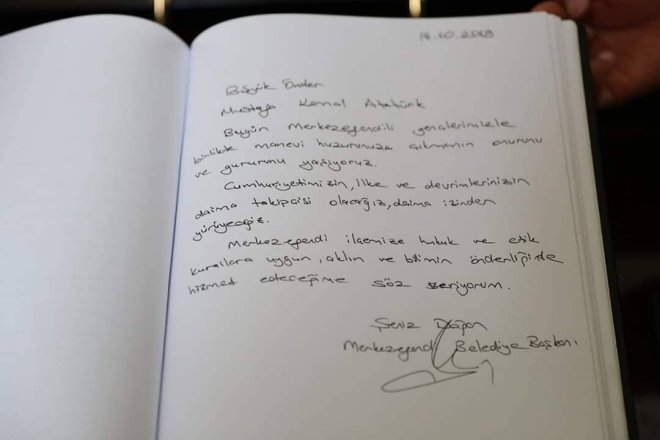 18.10.2019
Büyük Önder
Mustafa Kemal Atatürk
Bugün Merkezefendili gençlerimizle
birlikte manevi huzurunuza çıkmanın onurunu
ve gururunu yaşıyoruz.
Cumhuriyetimizin, ilke ve devrimlerinizin
daima takipçisi olacağız, daima izinden
yürüyeceğiz.
Merkezefendi ilçemize hukuk ve etik
kurallara uygun, aklın ve bilimin önderliğinde
hizmet edeceğime söz veriyorum.
Şeniz Doğan
Merkezefendi Belediye Başkanı